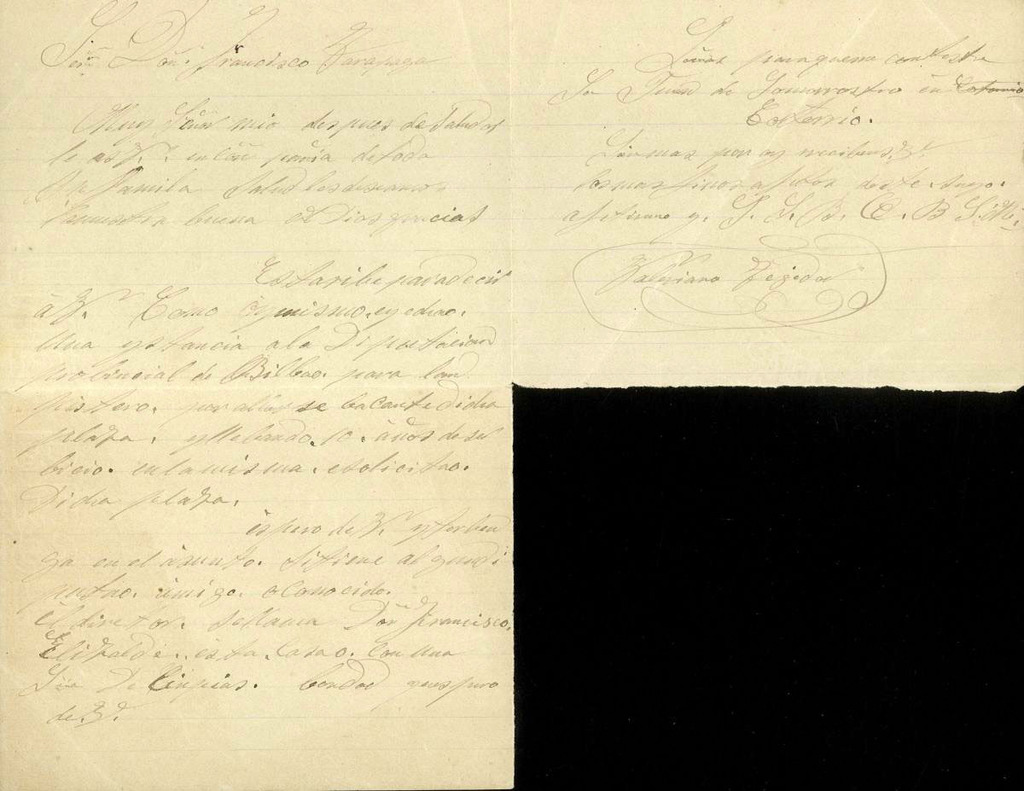 Señor Don Francisco
Muy Señor mio despues de saludar
le a V. en compañia de toda
su familia salud les deseamos
la nuestra buena a Dios gracias
Escribe para decir
a V. Como oy mismo. e yechao.
una ystancia a la Diputacion
probincial de Bilbao. para Cam
por allarse bacante dicha
plaza. y llebando. 10. años de ser
bicio. en la misma. e solicitao.
Dicha plaza.
espero de V. ynterben
ga en el asunto. si tiene algun di
putao. amigo. o conocido.
el diretor. se llama Don Francisco.
Elizalde. esta. casao. con una
Sra De Limpias. bondad que espero
de V.
Señas para que me contesta
San Juan de Somorrostro en
Sin mas por oy reciben V.
los mas finos afetos de este suyo.
afetisimo y. S. S. Q. B. S. M.
Tejedor